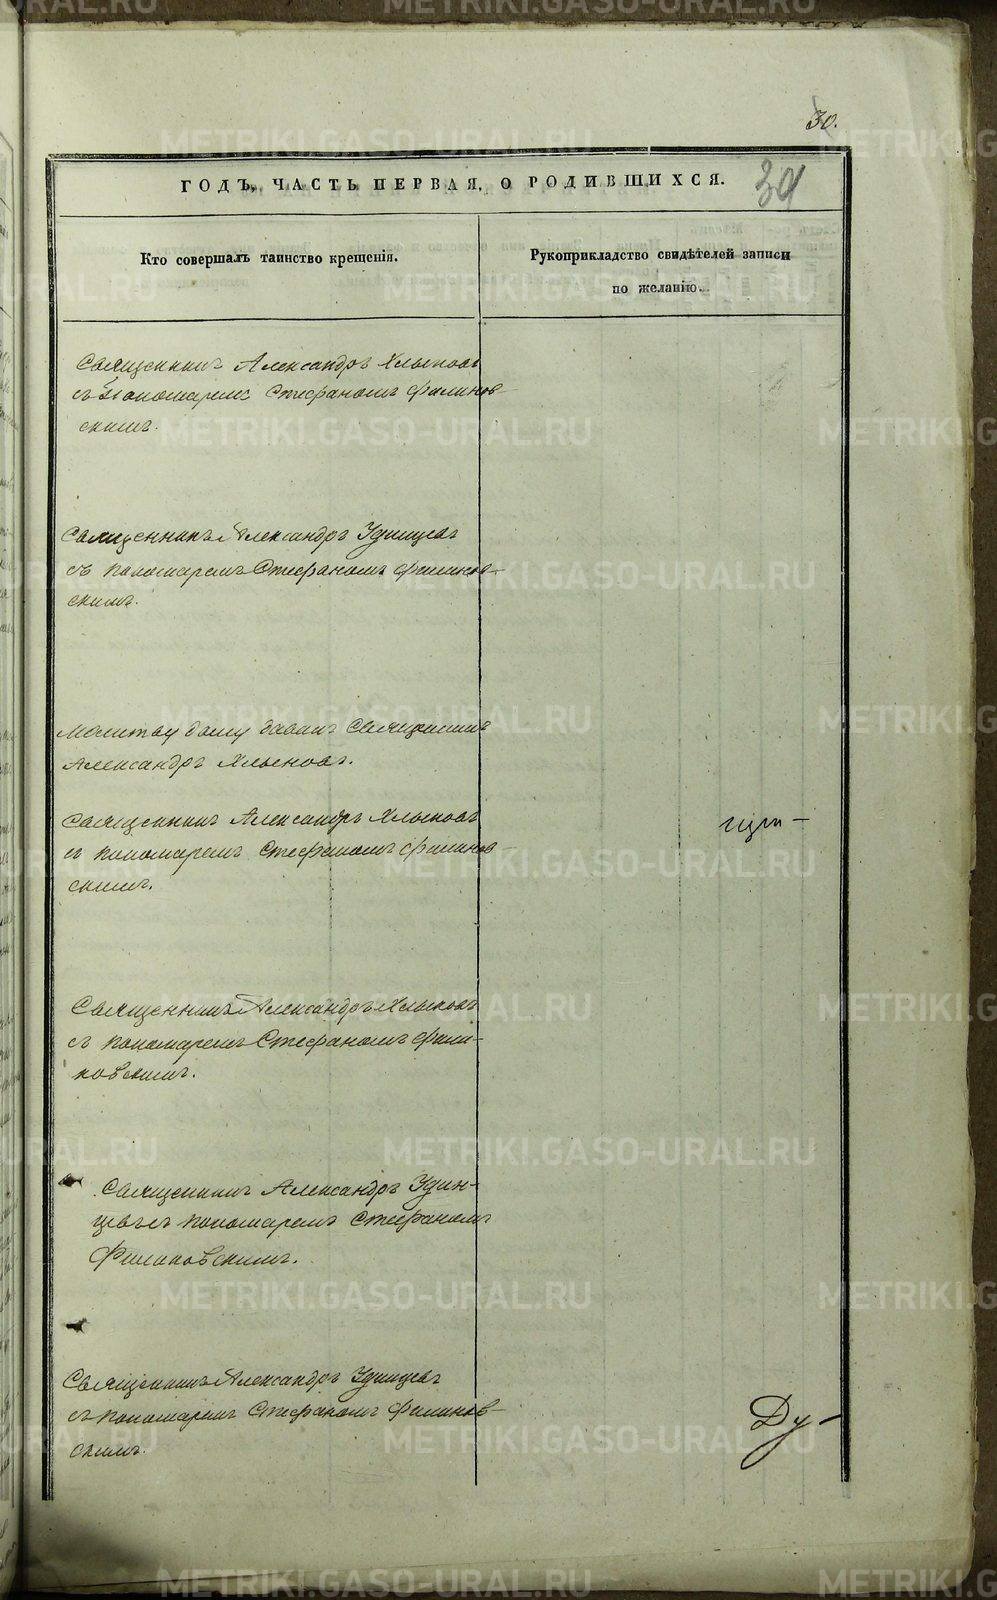 30.
39
ГОДЪ, ЧАСТЬ ПЕРВАЯ, О РОДИВШИХСЯ.
Кто совершалъ таинство крещенія.
Рукоприкладство свидѣтелей записи
по желанію.
Священникъ Александръ Хлыновъ
съ Пономаремъ Стефаномъ Филинов-
скимъ.
Священникъ Александръ Удинцевъ
съ пономаремъ Стефаномъ Филинов-
скимъ.
Молитву бабку давалъ Священникъ
Александръ Хлыновъ.
Священникъ Александръ Хлыновъ
съ пономаремъ Стефаномъ Филинов-
скимъ.
Священникъ Александръ Хлыновъ
съ пономаремъ Стефаномъ Фили-
новскимъ.
Священникъ Александръ Удин-
цевъ съ пономаремъ Стефаномъ
Филиновскимъ.
Священникъ Александръ Удинцевъ
съ пономаремъ Стефаномъ Филинов-
скимъ.
Ду-
METRIKI.GASO-URAL.RU